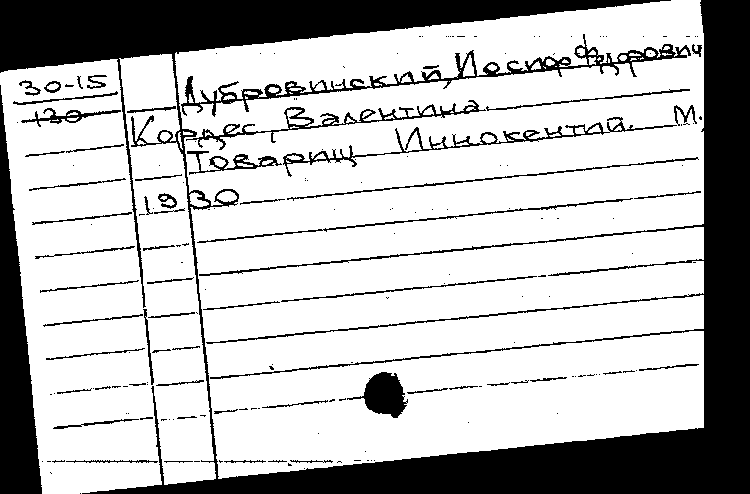 30-15 Дубровинский, Иосиф Фёдорович
130
Кордес, Валентина.
Товарищ Иннокентий. М.,
1930